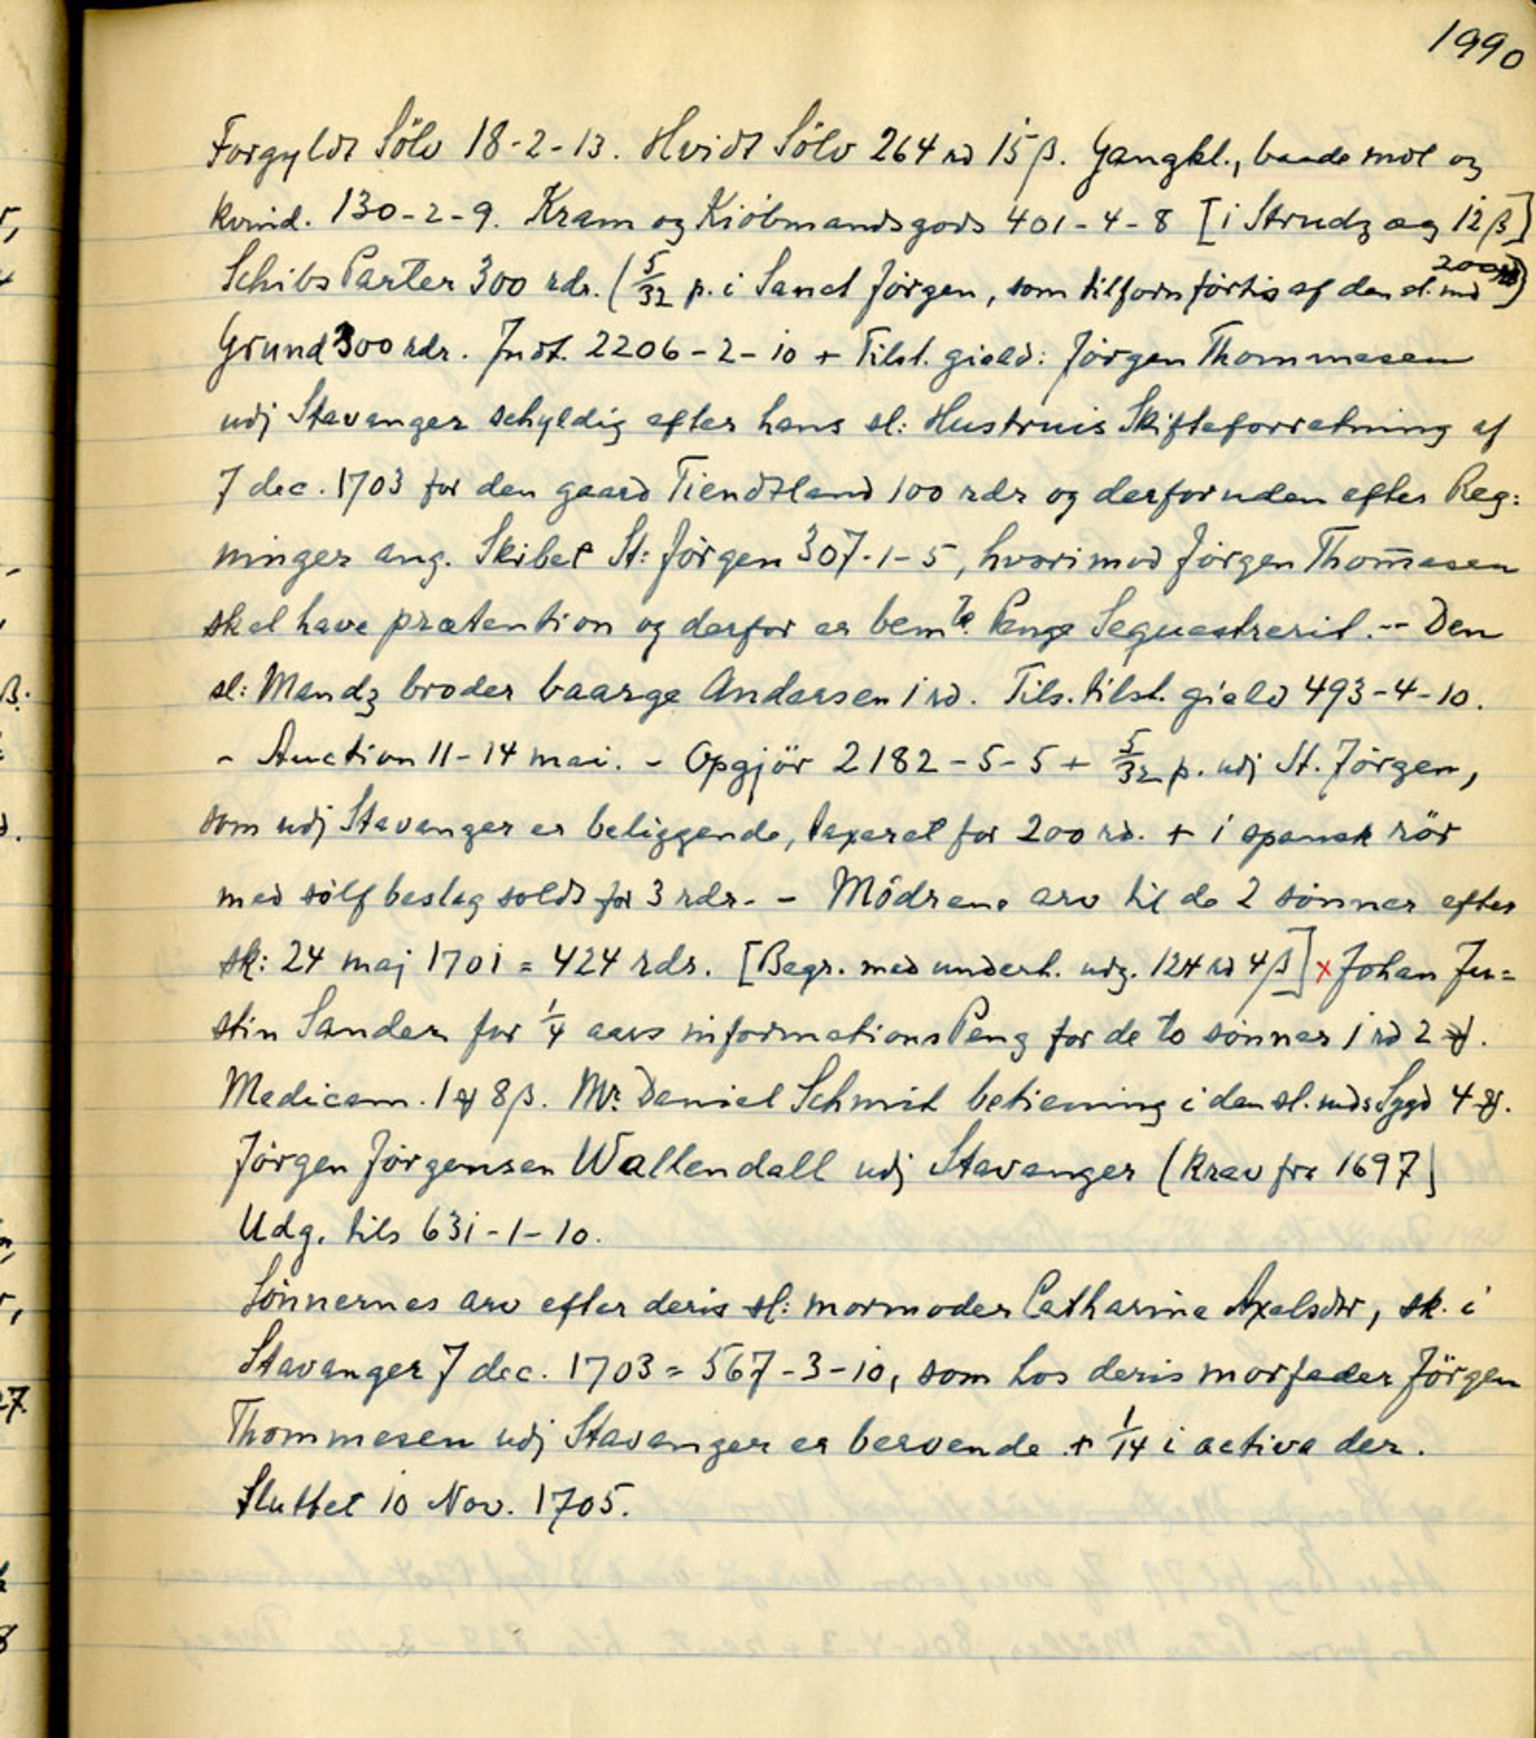 1990
Forgyldt Sölv 18-2-13. Hvidt Sölv 264 rd 15 β. Gangkl., baade mdl og
kvind. 130-2-9. Kram og Kiöbmandsgods 401-4-8 [i Strudz æg 12 β]
Schibs Parter 300 rdr. (5/32 p. i Sanct Jörgen, som tilforn förtis af den sl. md 200 rd)
Grund 300 rdr. Indt. 2206-2-10 + Tilst. gield: Jörgen Thommesen
udj Stavanger schyldig efter hans sl: Hustruis Skifteforretning af
7 dec. 1703 for den gaard Tiendtland 100 rdr og derforuden efter Reg:
ninger ang. Skibet St: Jörgen 307-1-5, hvorimod Jörgen Thom̄esen
skal have prætention og derfor er bemte Penge Sequestrerit. -- Den
sl: Mandz broder baarge Andersen 1 rd. Tils. tilst. gield 493-4-10.
- Auction 11-14 mai. - Opgjör 2182-5-5 + 5/32 p. udj St. Jörgen,
som udj Stavanger er beliggende, taxeret for 200 rd. + 1 spansk rör
med sölf beslag soldt for 3 rdr. - Mödrene arv til de 2 sönner efter
sk: 24 maj 1701 = 424 rdr. [Begr. med underh. udg. 124 rd 4 β] x Johan Ju=
stin Sander for 1/4 aars informations Peng for de to sönner 1 rd 2 ꝳ.
Medicam. 1 ꝳ 8 β. Mr. Daniel Schmit betiening i den sl. mds Sygd 4 ꝳ.
Jörgen Jörgensen Wallendall udj Stavanger (krav fra 1697)
Udg. tils 631-1-10.
Sönnernes arv efter deris sl: mormoder Catharina Axelsdtr, sk. i
Stavanger 7 dec. 1703 = 567-3-10, som hos deris morfader Jörgen
Thommesen udj Stavanger er beroende + 1/14 i activa der.
Sluttet 10 Nov. 1705.